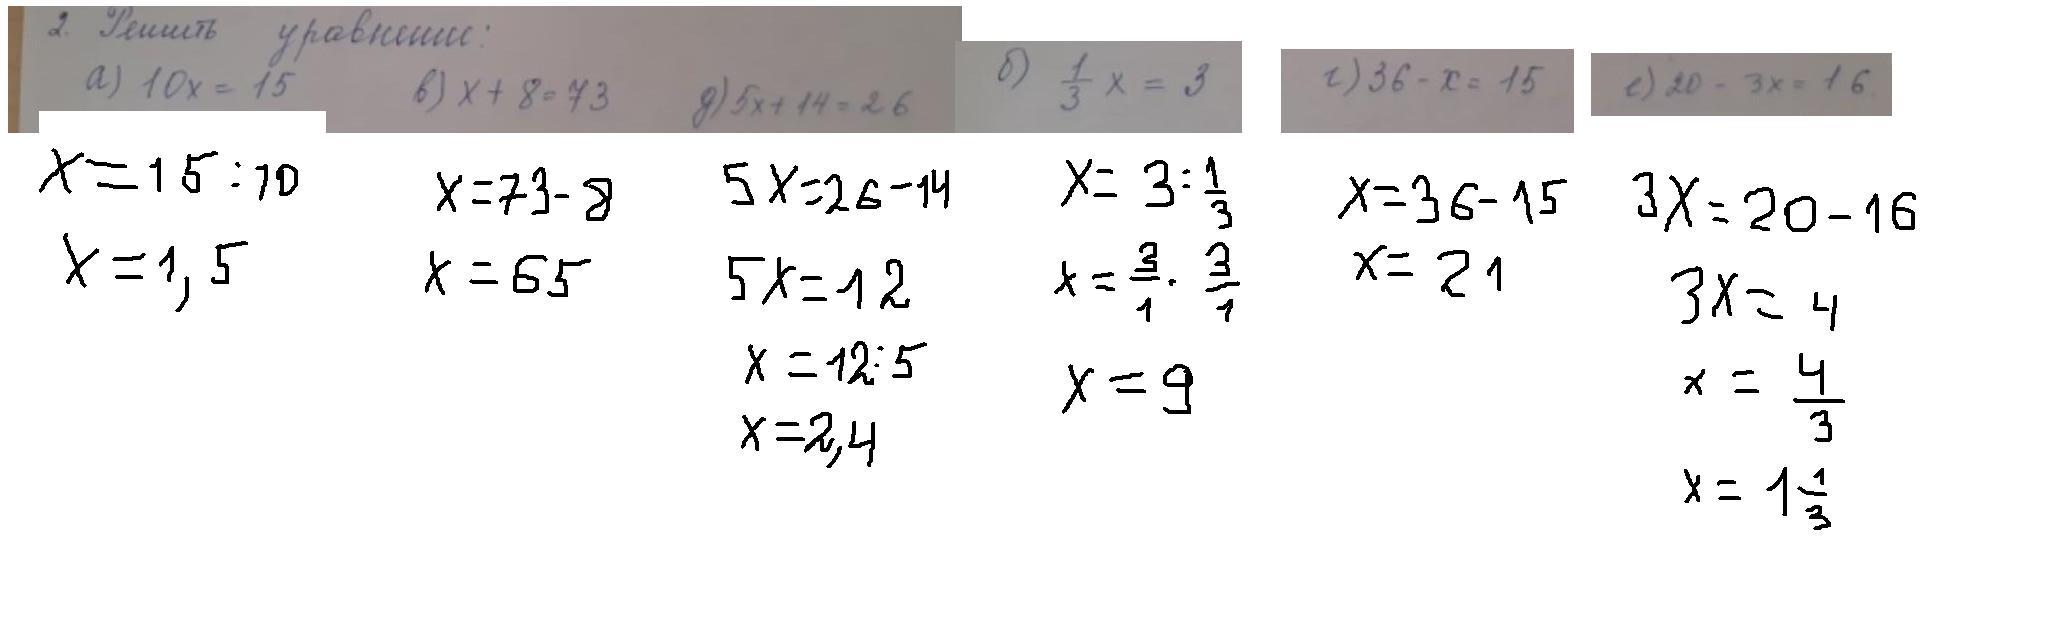 2. Решить уравнение:
а) 10x = 15
в) x + 8 = 73
д) 5x + 14 = 26
б) 1/3 x = 3
г) 36 - x = 15
е) 20 - 3x = 16.
x = 15 : 10
x = 1,5
x = 73 - 8
x = 65
5x = 26 - 14
5x = 12
x = 12 : 5
x = 2,4
x = 3 : 1/3
x = 3/1 · 3/1
x = 9
x = 36 - 15
x = 21
3x = 20 - 16
3x = 4
x = 4/3
x = 1 1/3